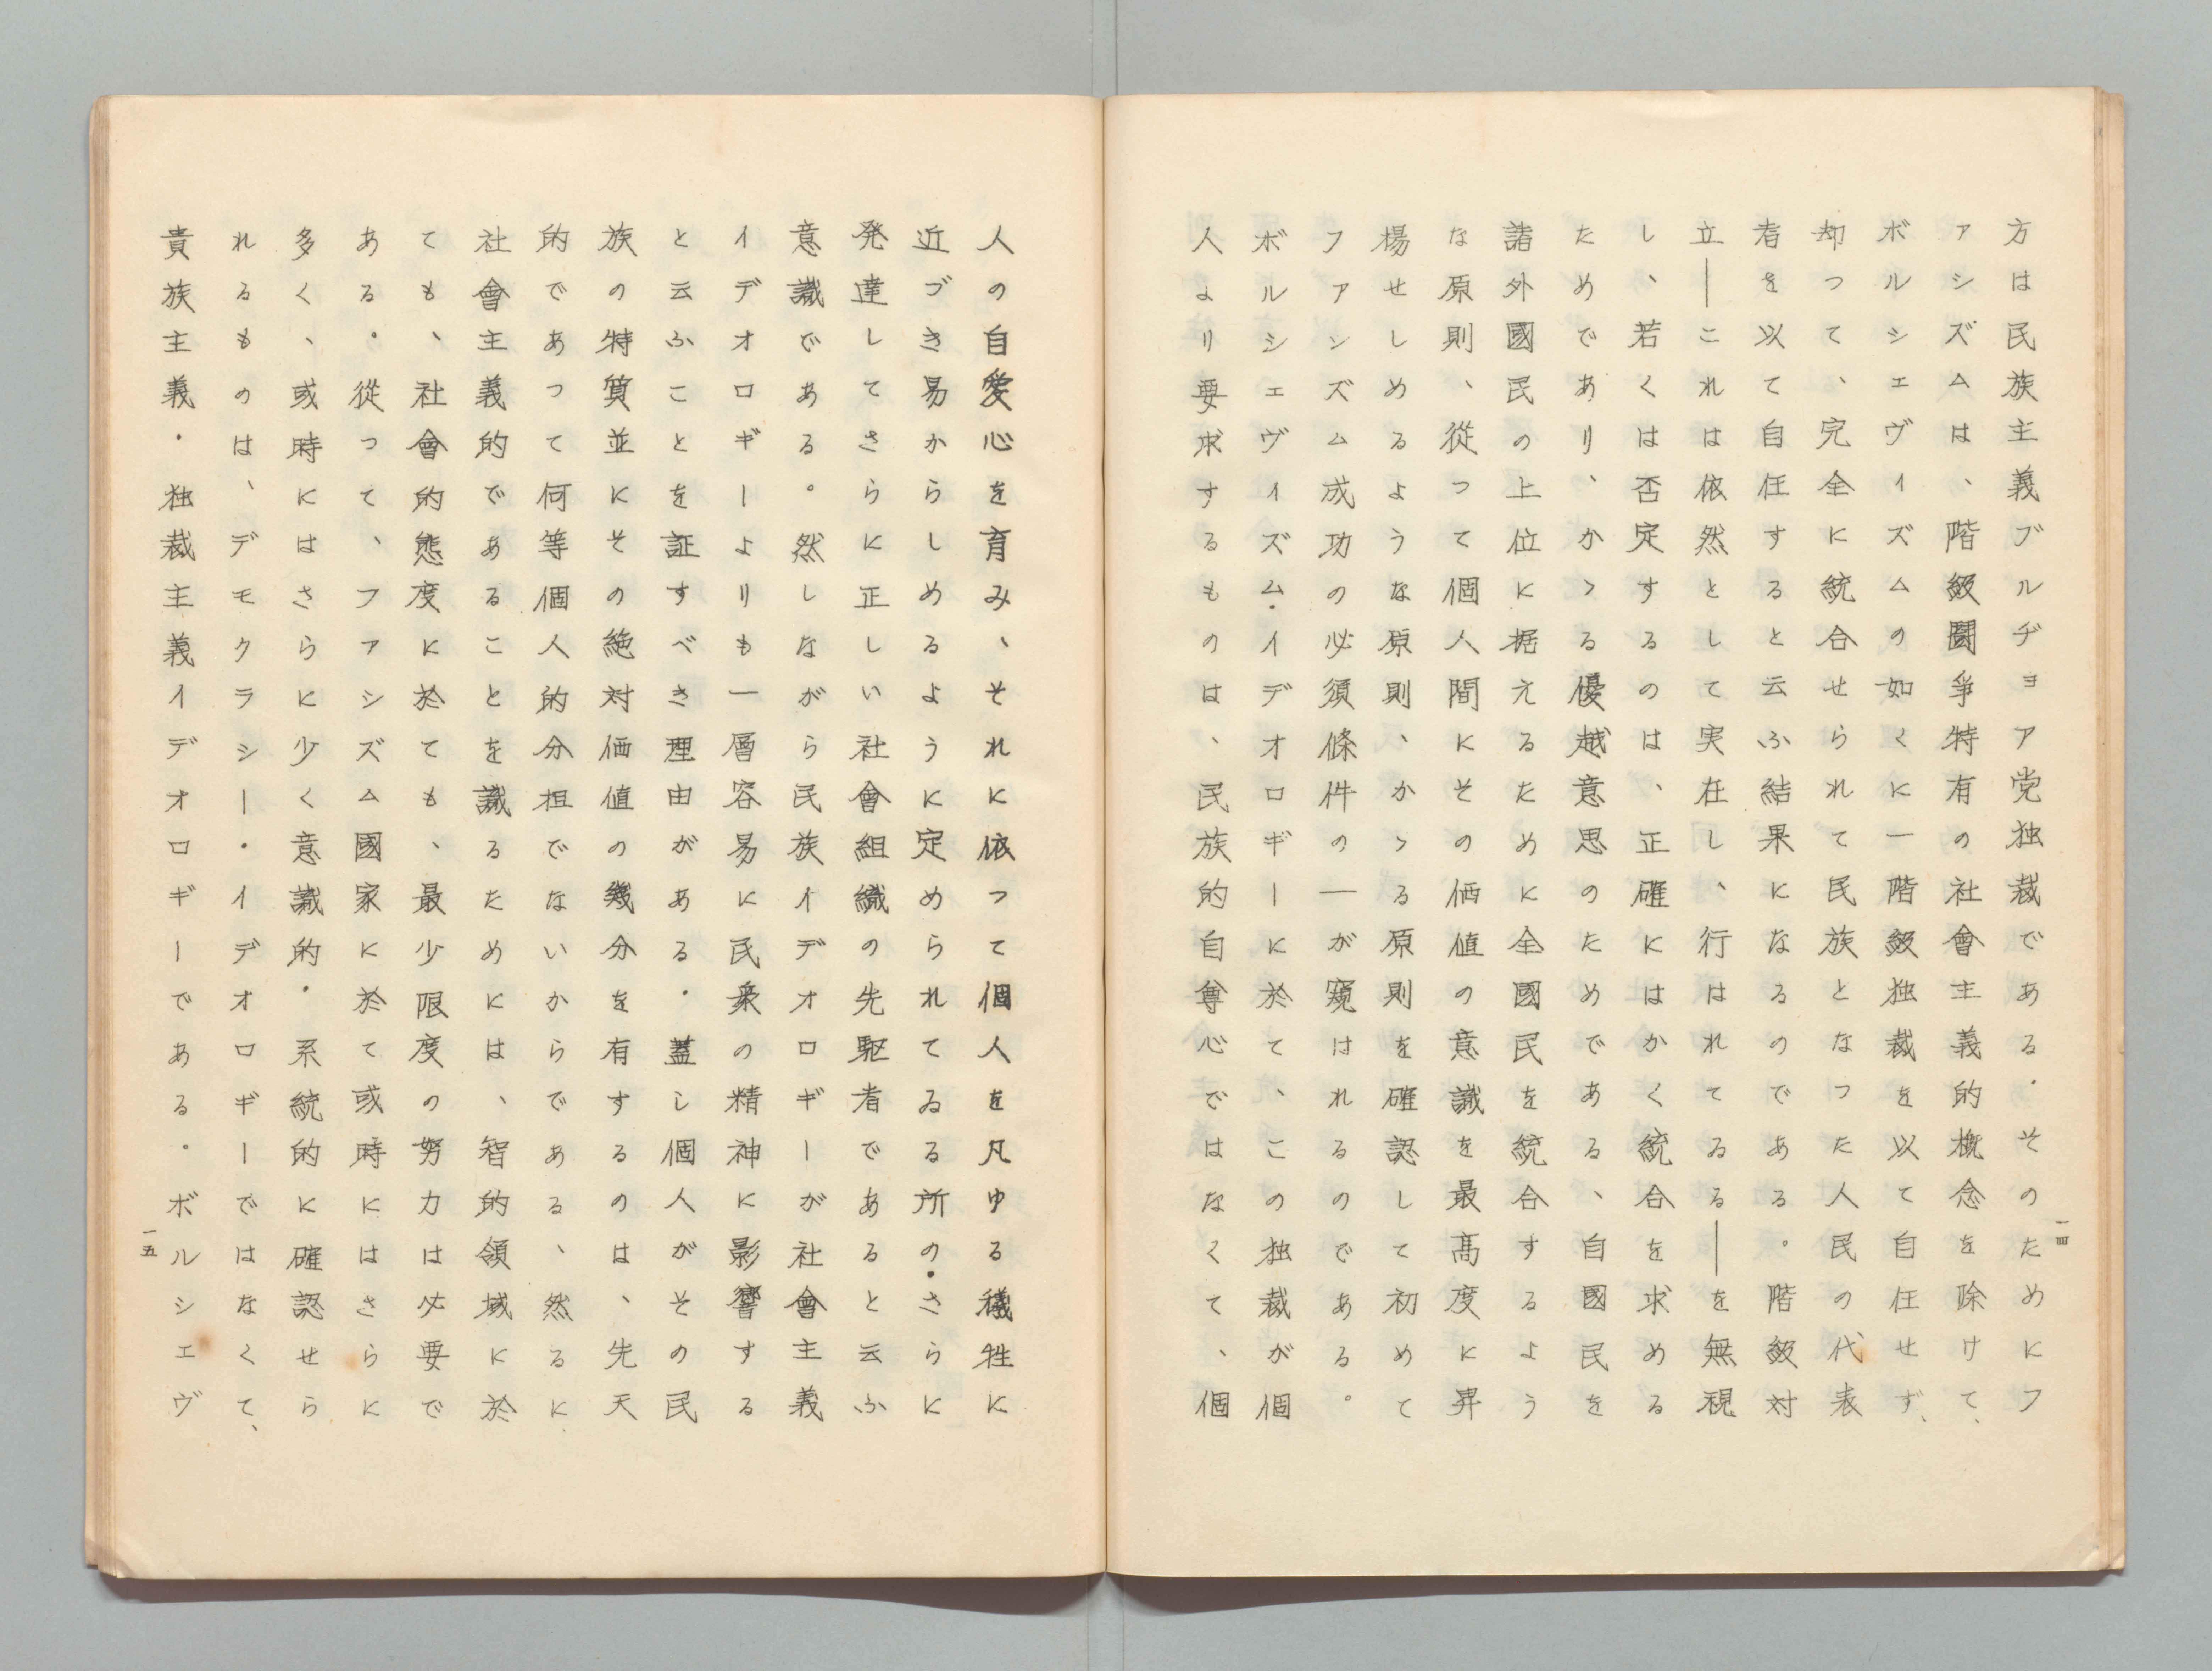 方は民族主義ブルヂョア党独裁である．そのためにフ
ァシズムは、階級闘争特有の社會主義的概念を除けて、
ボルシェヴィズムの如くに一階級独裁を以て自任せず、
却って、完全に統合せられて民族となった人民の代表
者を以て自任すると云ふ結果になるのである。階級対
立――これは依然として実在し、行はれてゐる――を無視
し、若くは否定するのは、正確にはかく統合を求める
ためであり、かゝる優越意思のためである、自國民を
諸外國民の上位に据えるために全國民を統合するよう
な原則、從つて個人間にその価値の意識を最高度に昇
楊せしめるような原則、かゝる原則を確認して初めて
ファシズム成功の必須條件の一が窺はれるのである。
ボルシェヴィズム・イデオロギーに於て、この独裁が個
人より要求するものは、民族的自尊心ではなくて、個
一四
人の自愛心を育み、それに依つて個人を凡ゆる犠牲に
近づき易からしめるように定められてゐる所の・さらに
発達してさらに正しい社會組織の先駆者であると云ふ
意識である。然しながら民族イデオロギーが社會主義
イデオロギーよりも一層容易に民衆の精神に影響する
と云ふことを証すべき理由がある．蓋し個人がその民
族の特質並にその絶対価値の幾分を有するのは、先天
的であつて何等個人的分担でないからである、然るに
社會主義的であることを識るためには、智的領域に於
ても、社會的態度に於ても、最少限度の努力は必要で
ある．從つて、ファシズム國家に於て或時にはさらに
多く、或時にはさらに少く意識的・系統的に確認せら
れるものは、デモクラシー・イデオロギーではなくて、
貴族主義・独裁主義イデオロギーである．ボルシェヴ
一五